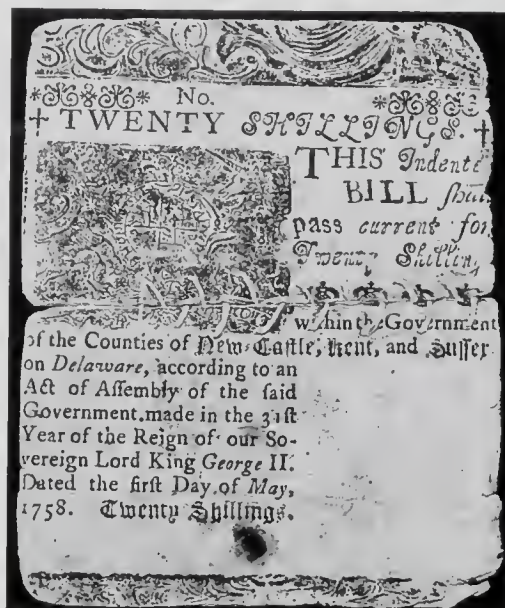 No.
TWENTY SHILLINGS.
THIS Indente
BILL ſhal
pass current for
Twenty Shilling
within the Government
of the Counties of New-Caſtle, Kent, and Suſſex
on Delaware, according to an
Act of Aſſembly of the ſaid
Government, made in the 31ſt
Year of the Reign of our So-
vereign Lord King George II.
Dated the firſt Day of May,
1758. Twenty Shillings.